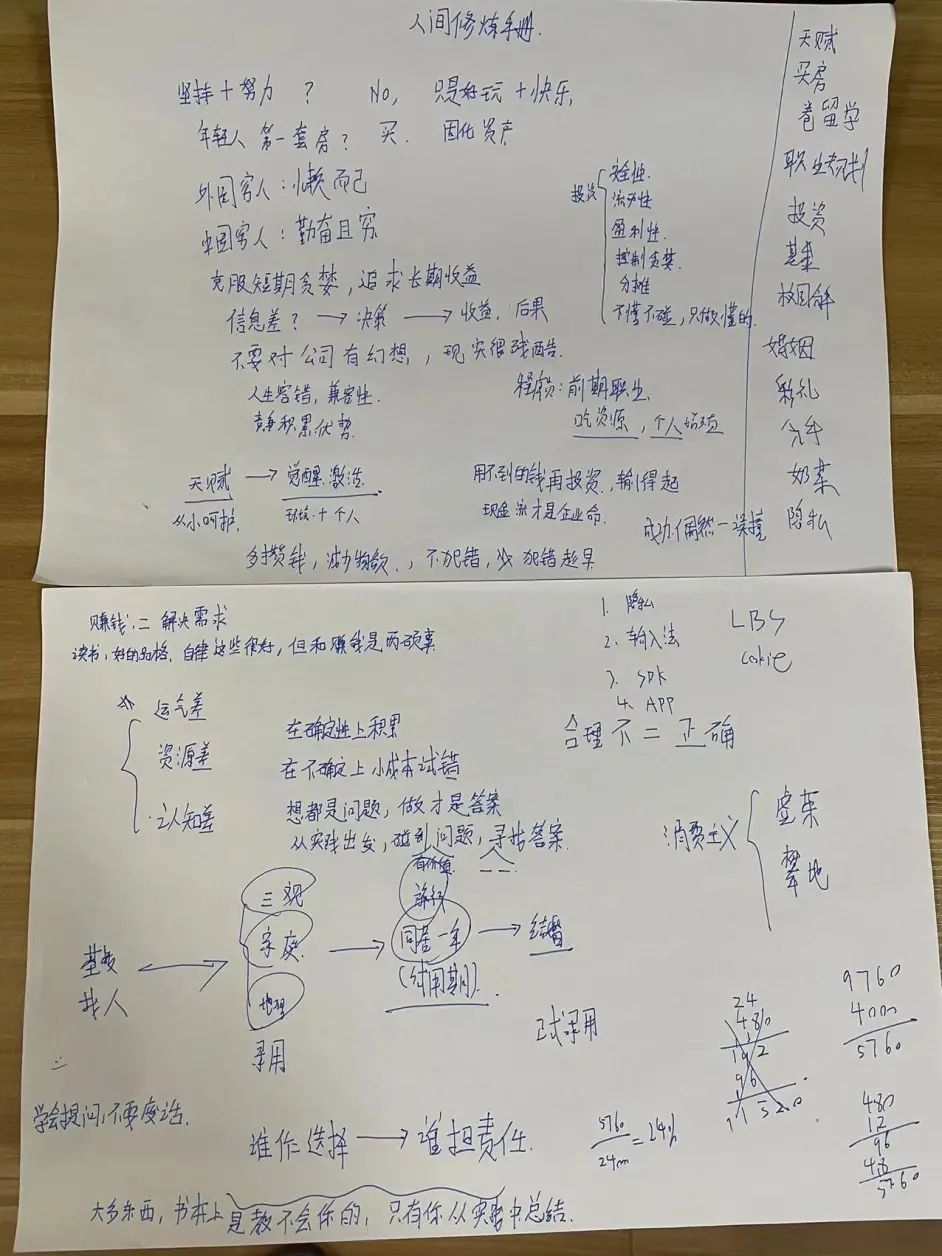 人间修炼手册.
坚持+努力 ? No, 只是好玩+快乐,
年轻人第一套房? 买. 固化资产
外国穷人:懒而已
中国穷人:勤奋且穷
克服短期贪婪,追求长期收益
信息差? → 决策 → 收益,后果
不要对公司有幻想,现实很残酷.
人生容错,兼容性.
积累优势.
程序员:前期职业
吃资源,个人
投资
安全性.
流动性
盈利性.
控制贪婪.
分摊
不懂不碰,只做懂的.
天赋 → 觉醒.激活.
从小呵护.
十个人
用不到的钱再投资,输得起
现金流才是企业命.
成功偶然
多攒钱,减少物欲.,不犯错,少犯错
天赋
买房
卷留学
职业规划
投资
基金
校园
婚姻
彩礼
分手
奶茶
隐私
赚钱.= 解决需求
读书,好的品格,自律这些很好,但和赚钱是两码事
运气差
资源差
认知差
在确定性上积累
在不确定上小成本试错
想都是问题,做才是答案
从实践出发,碰到问题,寻找答案.
1. 隐私
2. 输入法
3. SDK
4. APP
LBS
cokie
合理不=正确
消费主义
虚荣
攀比
有价值
旅行
三观
家庭.
地理
录用
找人
同居一年
(试用期).
结婚
正式录用
24
480
192
96
11520
9760
4000
5760
480
12
96
48
5760
5760
24m
=24%
学会提问,不要废话.
谁作选择 → 谁担责任.
大多东西,书本上是教不会你的,只有你从实践中总结.